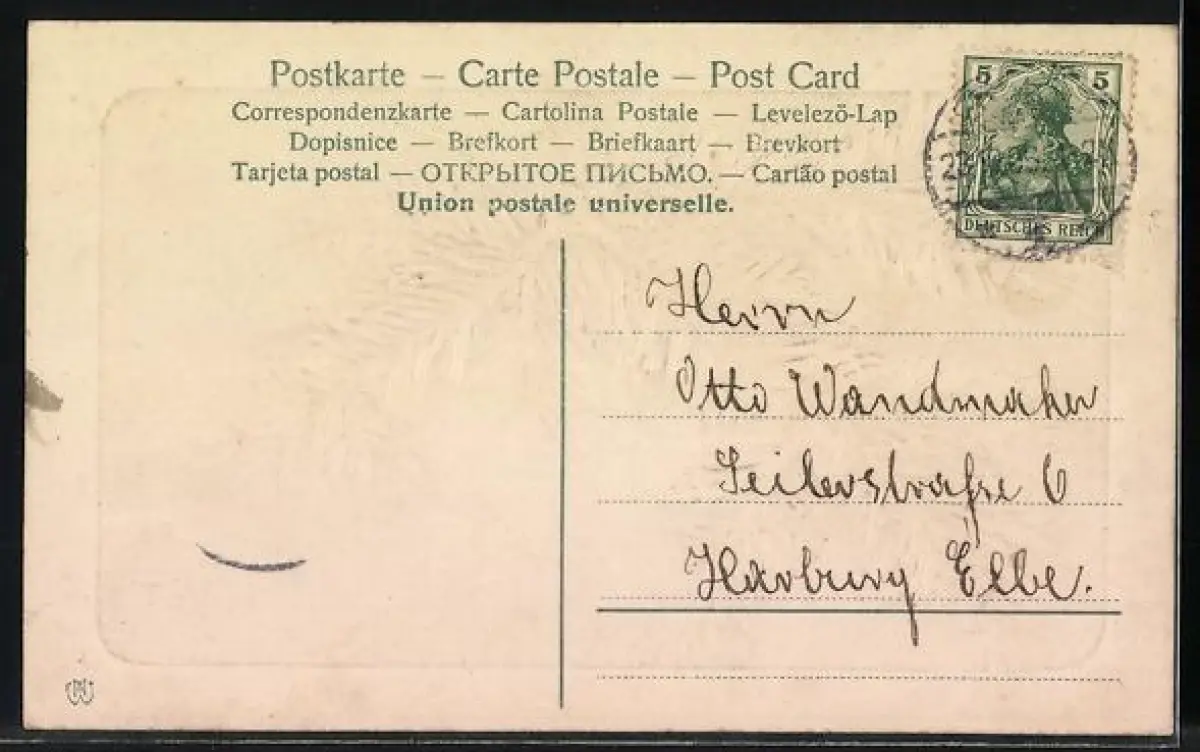 Postkarte — Carte Postale — Post Card
Correspondenzkarte — Cartolina Postale — Levelező-Lap
Dopisnice — Brefkort — Briefkaart — Brevkort
Tarjeta postal — ОТКРЫТОЕ ПИСЬМО. — Cartão postal
Union postale universelle.
5 5
DEUTSCHES REICH
Herrn
Otto Wandmaker
Seilerstraße 6
Harburg Elbe.